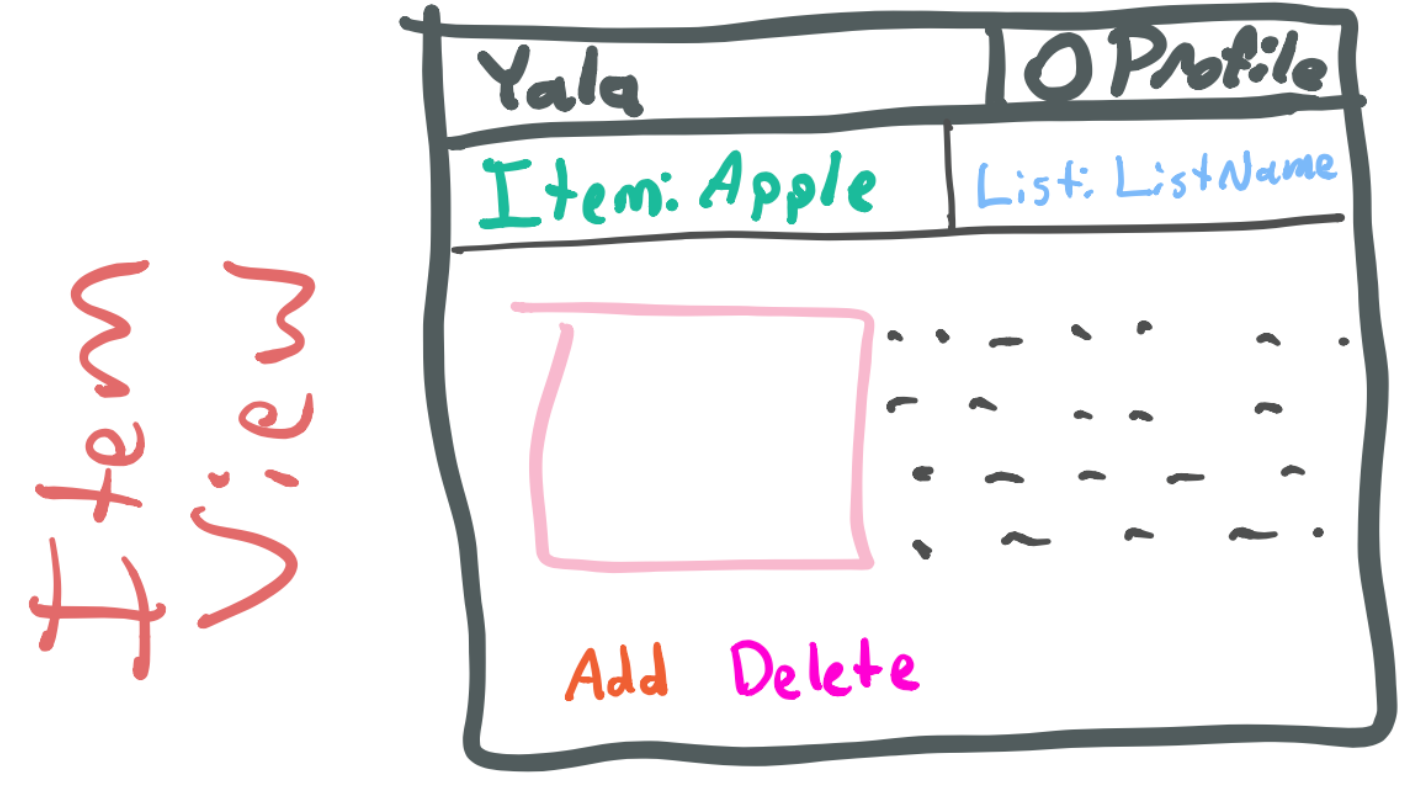 Item
View
Yala
O Profile
Item: Apple
List: ListName
Add
Delete